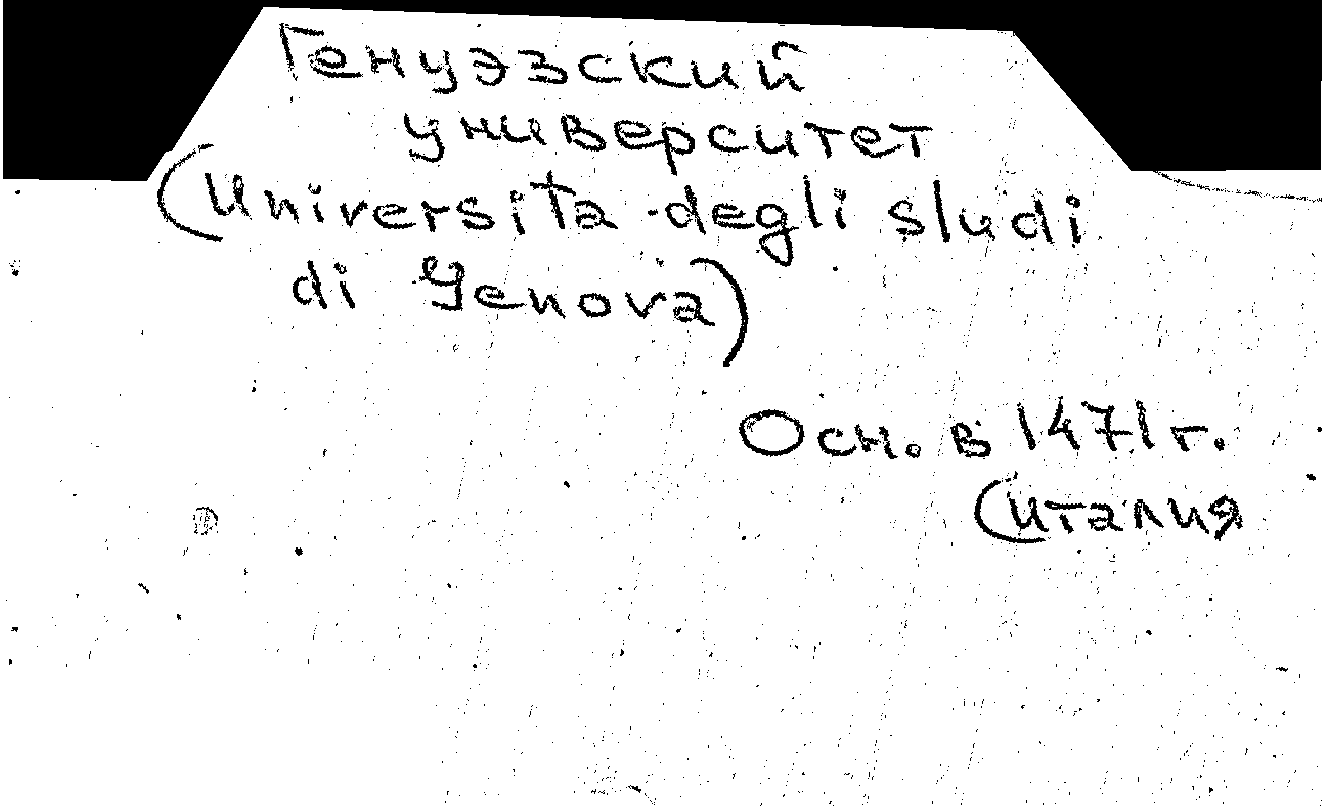 Генуэзский
университет
(Universita degli sludi
di Genova)
Осн. в 1471 г.
(Италия